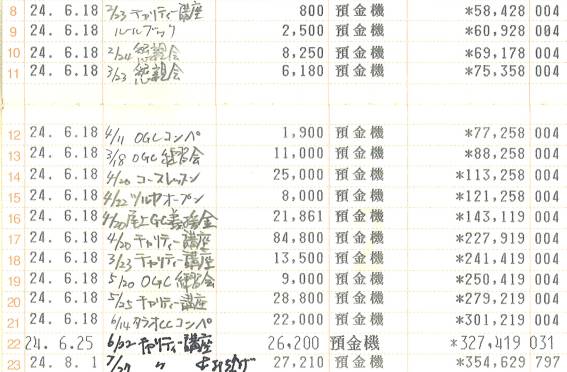 8 24. 6.18 2/23 チャリティー講座 800 預金機 *58,428 004
9 24. 6.18 ルールブック 2,500 預金機 *60,928 004
10 24. 6.18 2/24 懇親会 8,250 預金機 *69,178 004
11 24. 6.18 3/23 懇親会 6,180 預金機 *75,358 004
12 24. 6.18 4/11 OGCコンペ 1,900 預金機 *77,258 004
13 24. 6.18 3/18 OGC練習会 11,000 預金機 *88,258 004
14 24. 6.18 4/20 コースレッスン 25,000 預金機 *113,258 004
15 24. 6.18 4/22 ツルヤオープン 8,000 預金機 *121,258 004
16 24. 6.18 4/30 尾上GC義援金 21,861 預金機 *143,119 004
17 24. 6.18 4/20 チャリティー講座 84,800 預金機 *227,919 004
18 24. 6.18 3/23 チャリティー講座 13,500 預金機 *241,419 004
19 24. 6.18 5/20 OGC練習会 9,000 預金機 *250,419 004
20 24. 6.18 5/25 チャリティー講座 28,800 預金機 *279,219 004
21 24. 6.18 6/14 タラオCCコンペ 22,000 預金機 *301,219 004
22 24. 6.25 6/22 チャリティー講座 26,200 預金機 *327,419 031
23 24. 8. 1 7/27 〃 27,210 預金機 *354,629 797